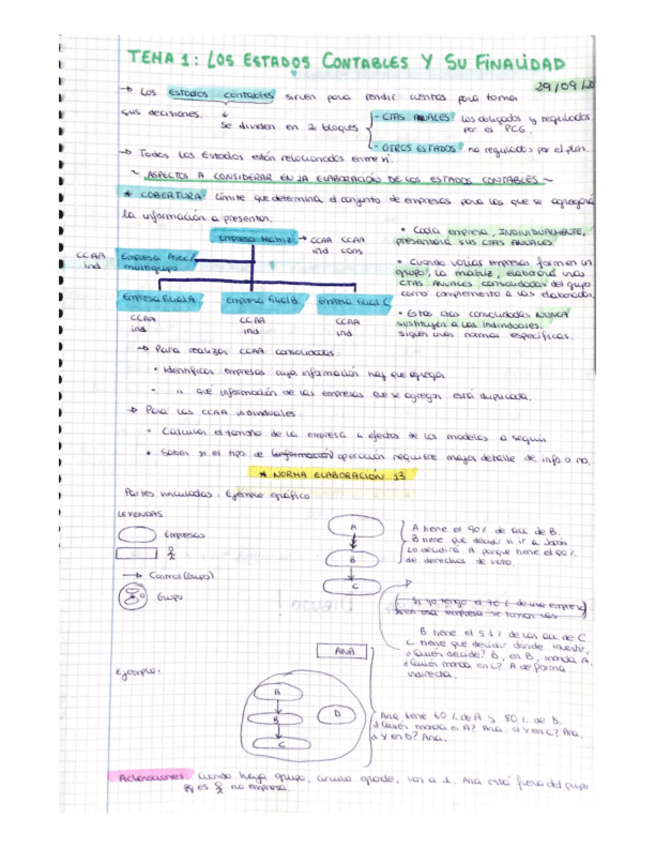 TEMA 1: LOS ESTADOS CONTABLES Y SU FINALIDAD
29/09/20
→ Los estados contables sirven para rendir cuentas para tomar
sus decisiones. ↓
Se dividen en 2 bloques
- CTAS ANUALES: los obligados y regulados
por el PCG.
- OTROS ESTADOS: no regulados por el plan.
→ Todos los Estados están relacionados entre sí.
~ ASPECTOS A CONSIDERAR EN LA ELABORACIÓN DE LOS ESTADOS CONTABLES ~
* COBERTURA: Límite que determina el conjunto de empresas para las que se agregará
la información a presentar.
Empresa Matriz → CCAA CCAA
ind cons
CCAA
ind
Empresa Asoc/
multigrupo
Empresa Filial A
Empresa Filial B
Empresa Filial C
CCAA
ind
CCAA
ind
CCAA
ind
• Cada empresa, INDIVIDUALMENTE,
presentará sus CTAS ANUALES.
• Cuando varias empresas formen un
grupo, la matriz, elaborará unas
CTAS ANUALES consolidadas del grupo
como complemento a las elaboradas.
• Estas ctas consolidadas NUNCA
sustituyen a las individuales.
Siguen unas normas específicas.
→ Para realizar CCAA consolidadas:
• Identificar empresas cuya información hay que agregar
• " qué información de las empresas que se agregan está duplicada.
→ Para las CCAA individuales:
• Calcular el tamaño de la empresa a efectos de los modelos a seguir
• Saber si el tipo de operación requiere mayor detalle de info o no.
* NORMA ELABORACIÓN 13
Partes vinculadas: Ejemplo gráfico
LEYENDAS
Empresas
→ Control (Grupo)
Grupo
A
B
C
A tiene el 90% de acc de B.
B tiene que decidir si ir a Japón
Lo decidirá A porque tiene el 90%
de derechos de voto.
B tiene el 51% de las acc de C
C tiene que decidir donde invertir,
¿Quién decide? B, en B, manda A.
¿Quién manda en C? A de forma
indirecta.
Ejemplo:
ANA
A
B
C
D
Ana tiene 60% de A y 80% de D.
¿Quién manda en A? Ana. ¿Y en C? Ana.
¿Y en D? Ana.
Aclaraciones: cuando haya grupo, círculo grande, van a 1. Ana está fuera del grupo
es no empresa.